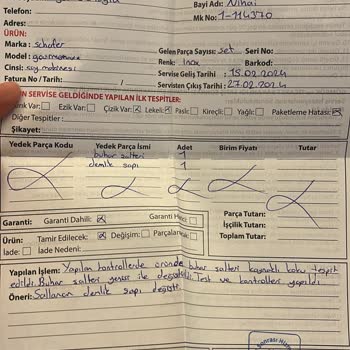 Telefon:
Adres:
Bayi Adı: Nihai
Mk No: 1-114370
ÜRÜN:
Marka: schafer
Model: gourmetmaxx
Cinsi: çay makinesi
Fatura No / Tarih: /
Gelen Parça Sayısı: set Seri No:
Renk: inox Barkod:
Servise Geliş Tarihi : 18.02.2024
Servisten Çıkış Tarihi : 27.02.2024
ÜRÜN SERVİSE GELDİĞİNDE YAPILAN İLK TESPİTLER:
Kırık Var: Ezik Var: Çizik Var: Lekeli: Paslı: Kireçli: Yağlı: Paketleme Hatası:
Diğer Tespitler :
Şikayet:
Yedek Parça Kodu Yedek Parça İsmi Adet Birim Fiyatı Tutar
buhar salteri 1
demlik sapı 1
Garanti: Garanti Dahili: Garanti Harici:
Ürün: Tamir Edilecek: Değişim: Parçalanacak:
İade: İade Nedeni:
Parça Tutar:
İşçilik Tutar:
Toplam Tutar:
Yapılan İşlem: Yapılan kontrollerde üründe buhar salteri kaynaklı koku tespit
edildi. Buhar salteri yenisi ile değiştirildi. Test ve kontrolleri yapıldı
Öneri: Sallanan demlik sapı değişti.